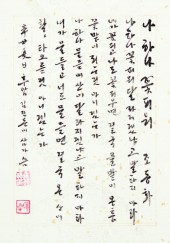 나 하나 꽃 피어 조동화
나 하나 꽃피어 풀밭이 달라지겠냐고 말하지 마라
네가 꽃피고 나도 꽃피면 결국 풀밭이 온통
꽃밭이 되는 것 아니겠는가
나 하나 물들어 산이 달라지겠냐고 말하지 마라
내가 물들고 너도 물들면 결국 온 산이
활활 타오르는 것 아니겠는가